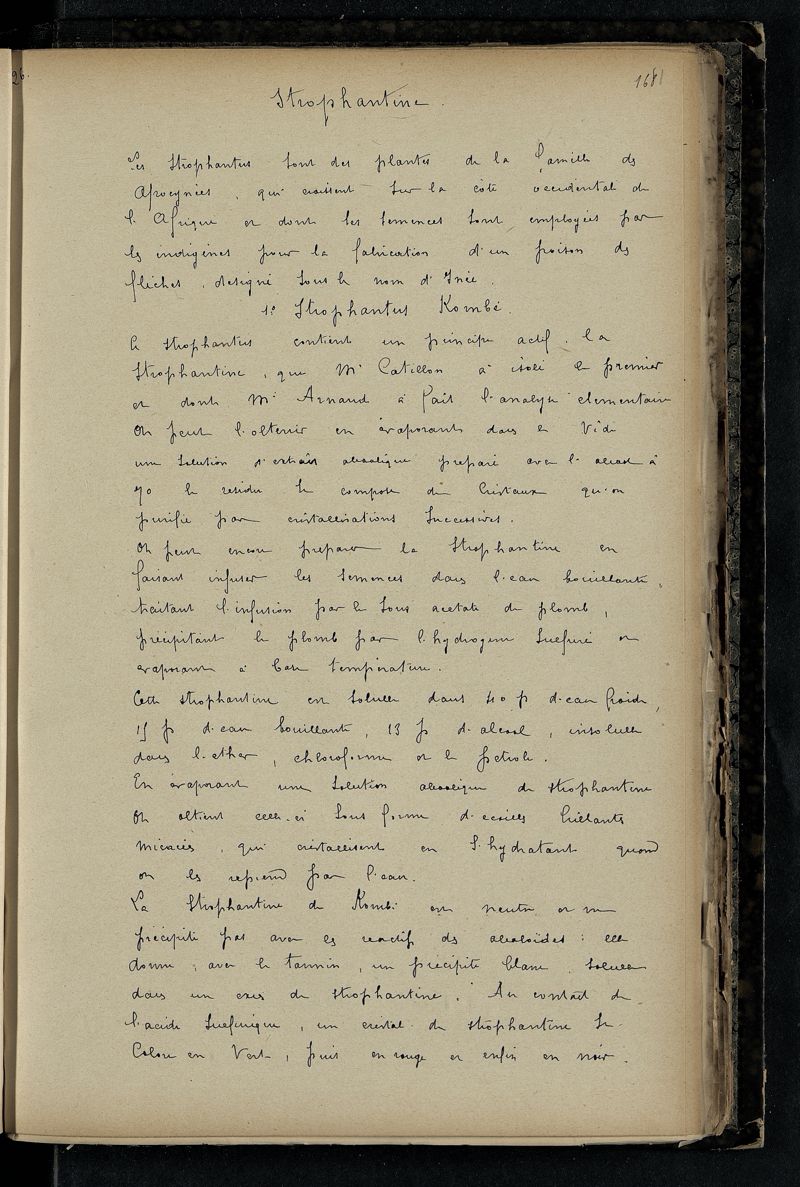 26.
1681
Strophantine.
Les Strophantus sont des plantes de la famille des
Apocynées, qui croissent sur la côte occidentale de
l'Afrique et dont les semences sont employées par
les indigènes pour la fabrication d'un poison des
flèches, désigné sous le nom d'Inée.
1º Strophantus Kombé.
Le strophantus contient un principe actif, la
Strophantine, que Mr Catillon a isolé le premier
et dont Mr Arnaud a fait l'analyse élémentaire
On peut l'obtenir en évaporant dans le vide
une solution d'extrait alcoolique préparé avec l'alcool à
70 le résidu se compose de cristaux qu'on
purifie par cristallisations successives.
On peut encore préparer la Strophantine en
faisant infuser les semences dans l'eau bouillante,
traitant l'infusion par le sous acétate de plomb,
précipitant le plomb par l'hydrogène sulfuré et
évaporant à basse température.
Cette strophantine est soluble dans 40 p d'eau froide,
15 p d'eau bouillante, 13 p d'alcool, insoluble
dans l'éther, chloroforme et le pétrole.
En évaporant une solution alcoolique de strophantine
on obtient celle-ci sous forme d'écailles brillantes
micacées, qui cristallisent en s'hydratant quand
on les reprend par l'eau.
La Strophantine de Kombé est neutre et ne
précipite pas avec les réactifs des alcaloïdes : elle
donne, avec le tannin, un précipité blanc, soluble
dans un excès de strophantine. Au contact de
l'acide sulfurique, un cristal de strophantine se
colore en vert, puis en rouge et enfin en noir.